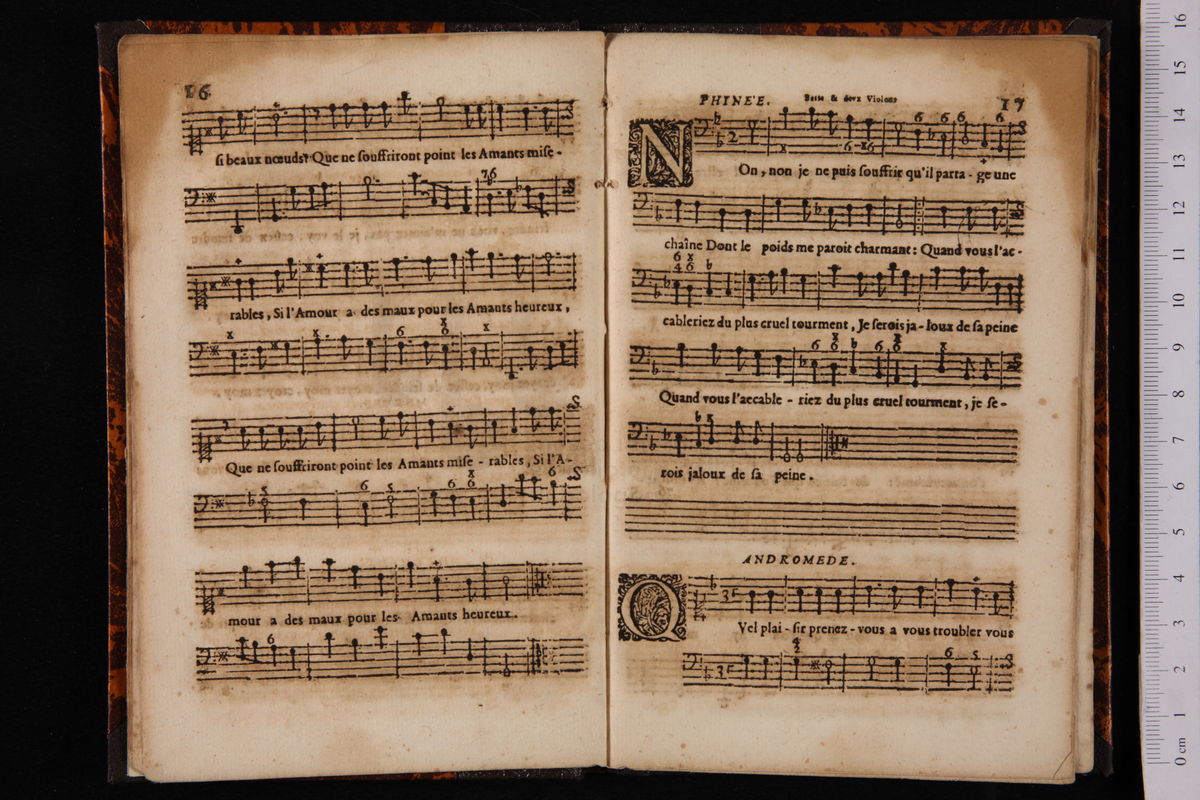 16
si beaux nœuds? Que ne souffriront point les Amants mise -
76
rables, Si l'Amour a des maux pour les Amants heureux,
x x 6 x 6 x
Que ne souffriront point les Amants mise - rables, Si l'A -
5 6 5 6 x 6 6
mour a des maux pour les Amants heureux.
6
PHINE'E. Basse & deux Violons 17
2 6 6 6 6
x 6 x6
NOn, non je ne puis souffrir qu'il parta - ge une
chaîne Dont le poids me paroit charmant: Quand vous l'ac -
6 x
4 6
cableriez du plus cruel tourment, Je serois ja - loux de sa peine
6 x 6 6 x 6 x
Quand vous l'accable - riez du plus cruel tourment, je se -
x
rois jaloux de sa peine.
ANDROMEDE.
3
QVel plai - sir prenez - vous a vous troubler vous
3 6 5
0 cm 1 2 3 4 5 6 7 8 9 10 11 12 13 14 15 16